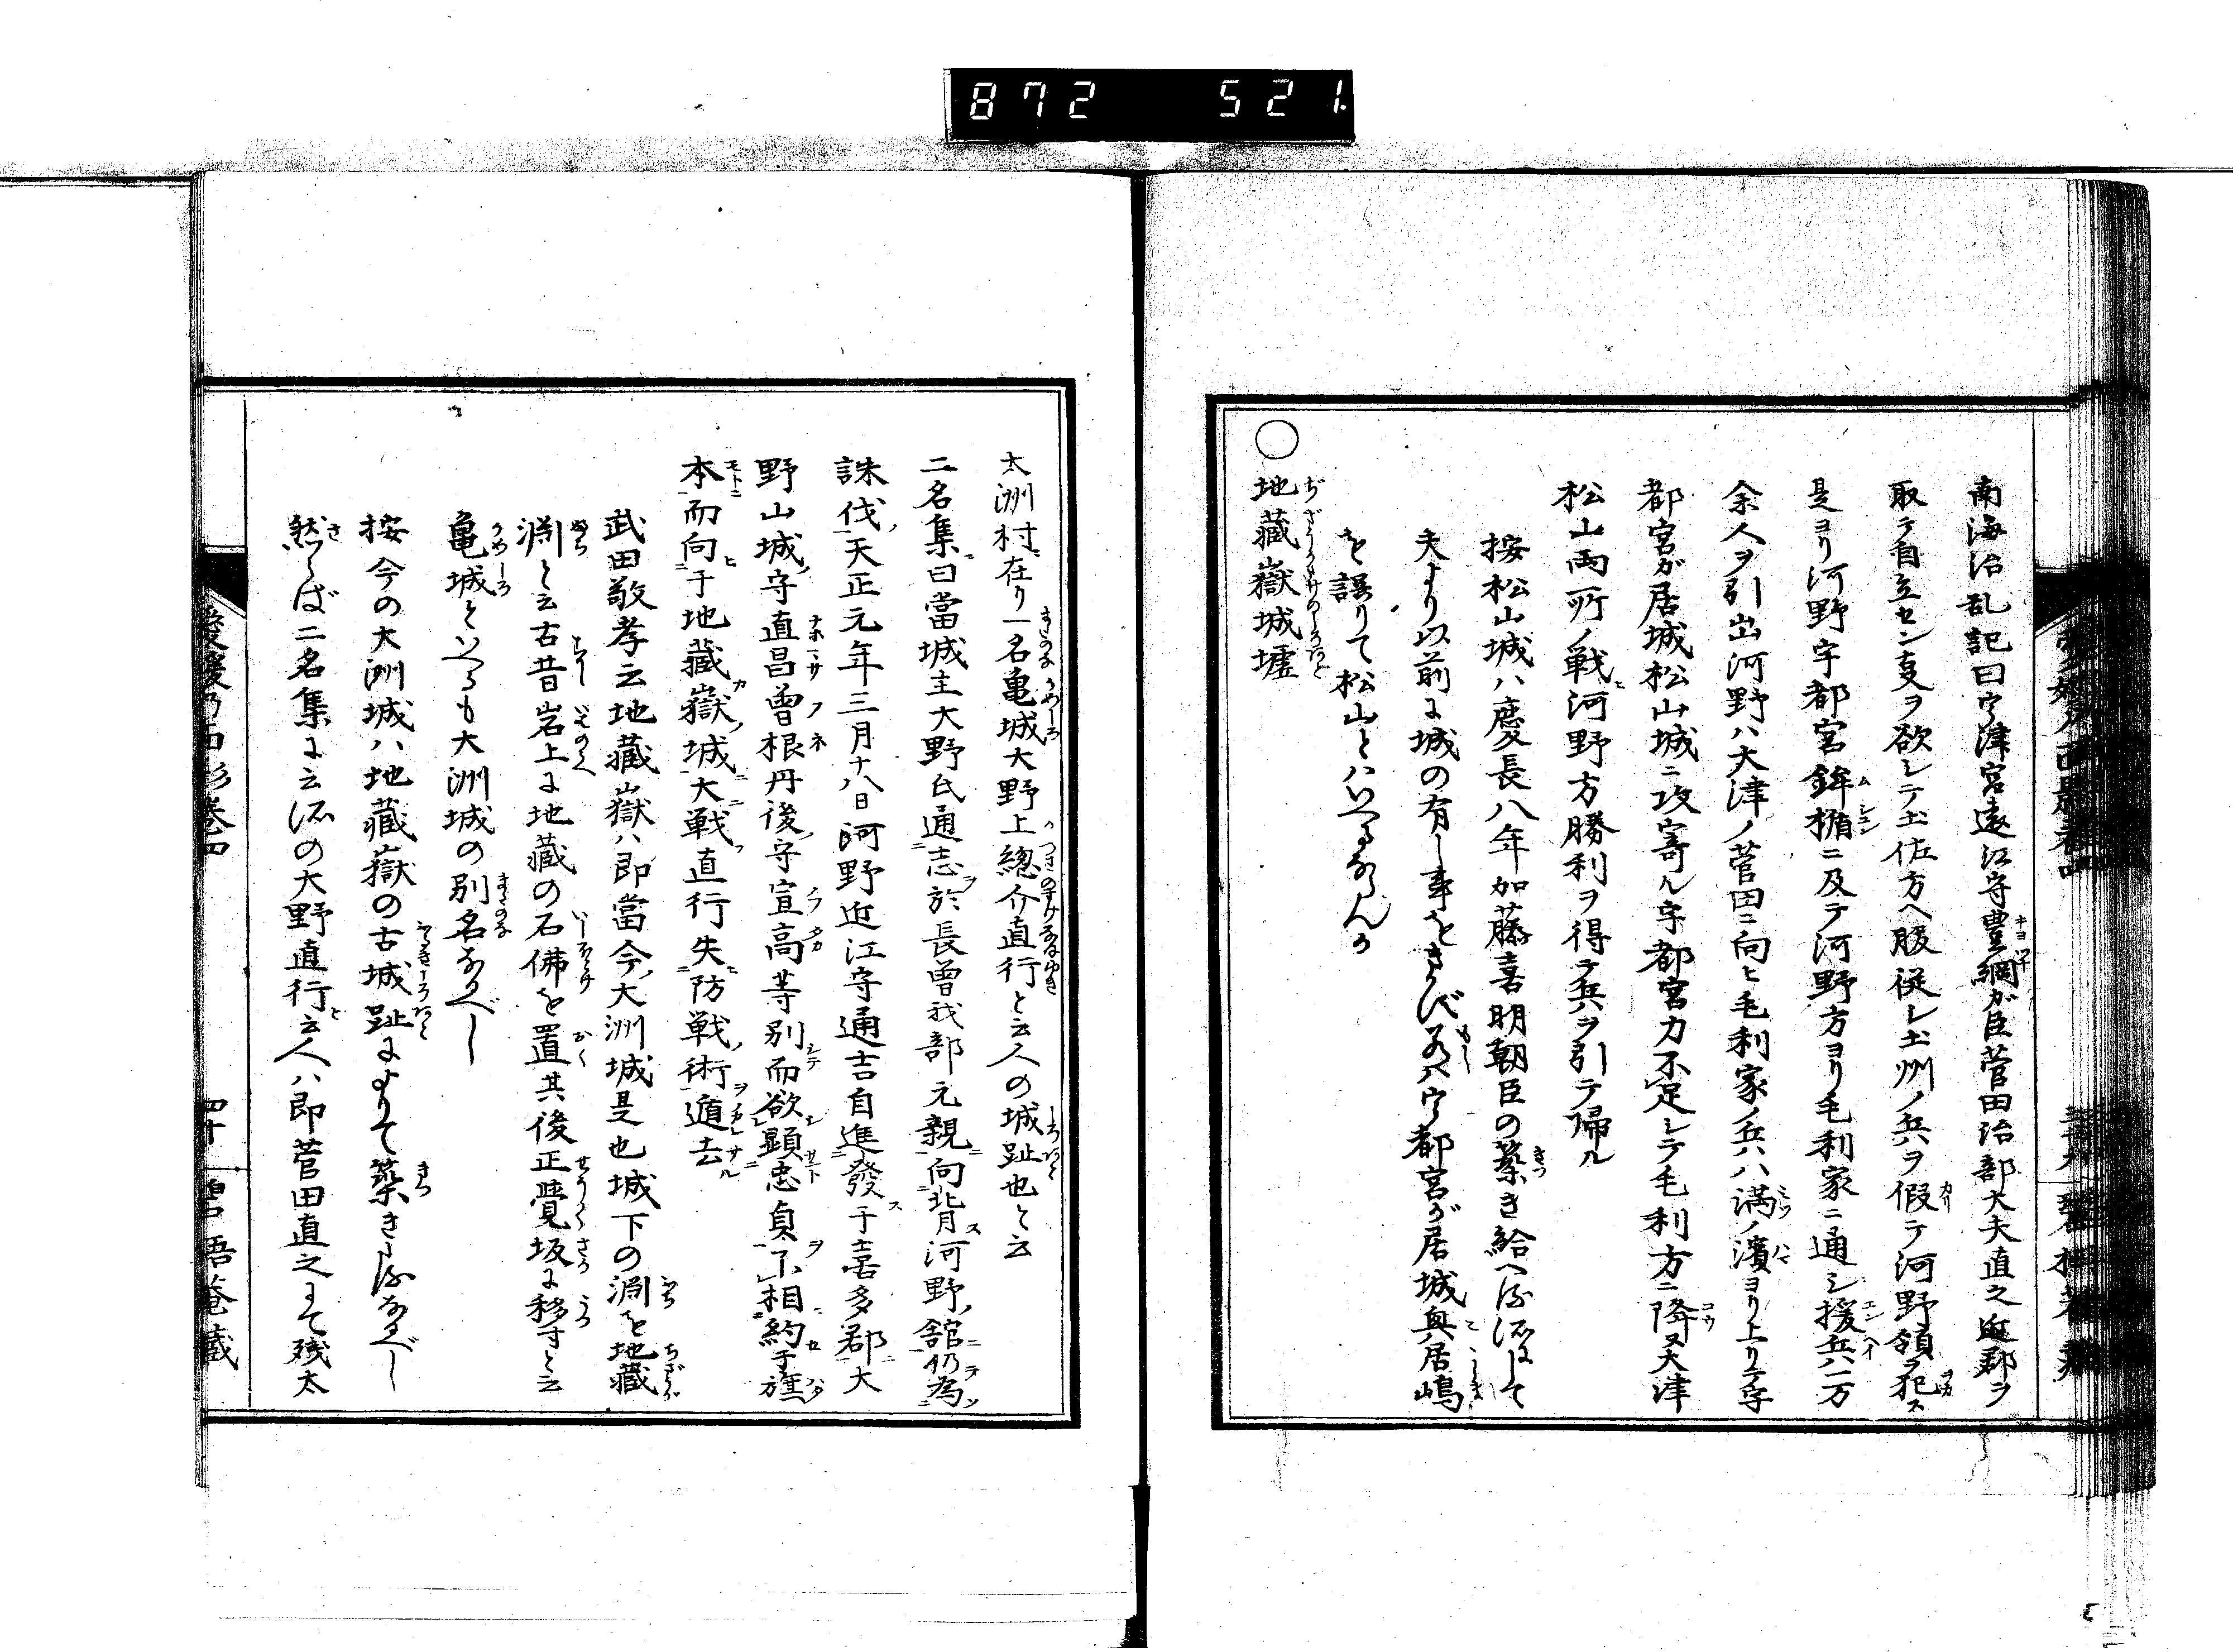 872 521
南海治乱記曰宇津宮遠江守豊綱ガ臣菅田治部大夫直之逆郡ヲ
取テ自立セン支ヲ欲シテ土佐方ヘ服従シ土州ノ兵ヲ假テ河野領ヲ犯ス
是ヨリ河野宇都宮鉾楯ニ及テ河野方ヨリ毛利家ニ通シ援兵八一万
余人ヲ引出河野ハ大津ノ菅田ニ向ヒ毛利家ノ兵ハ満ノ濱ヨリ上リテ宇
都宮ガ居城松山城ニ攻寄ル宇都宮力不足シテ毛利方ニ降又大津
松山両所ノ戦河野方勝利ヲ得テ兵ヲ引テ帰ル
按松山城ハ慶長八年加藤喜明朝臣の築き給へる渡にして
夫より以前に城の有し事をきかバ若ハ宇都宮が居城與居嶋
を誤りて松山とハいへるならんか
○
地藏嶽城墟
大洲村ニ在リ一名亀城大野上總介直行と云人の城趾也と云
二名集曰當城主大野氏通志於長曾我部元親向背河野舘仍為
誅伐天正元年三月十八日河野近江守通吉自進發于喜多郡大
野山城守直昌曾根丹後守宣高等別而欲顕忠貞不相約于旌
本而向于地藏嶽城大戦直行失防戦術遁去
武田敬孝云地藏嶽ハ即當今大洲城是也城下の淵を地藏
淵と云古昔岩上に地藏の石佛を置其後正覺坂に移すと云
亀城といへるも大洲城の別名なるべし
按今の大洲城ハ地藏嶽の古城趾によりて築きしなるべし
然らば二名集に云流の大野直行と云人ハ即菅田直之にて残太
愛媛乃面影巻四
四十
碧梧菴藏